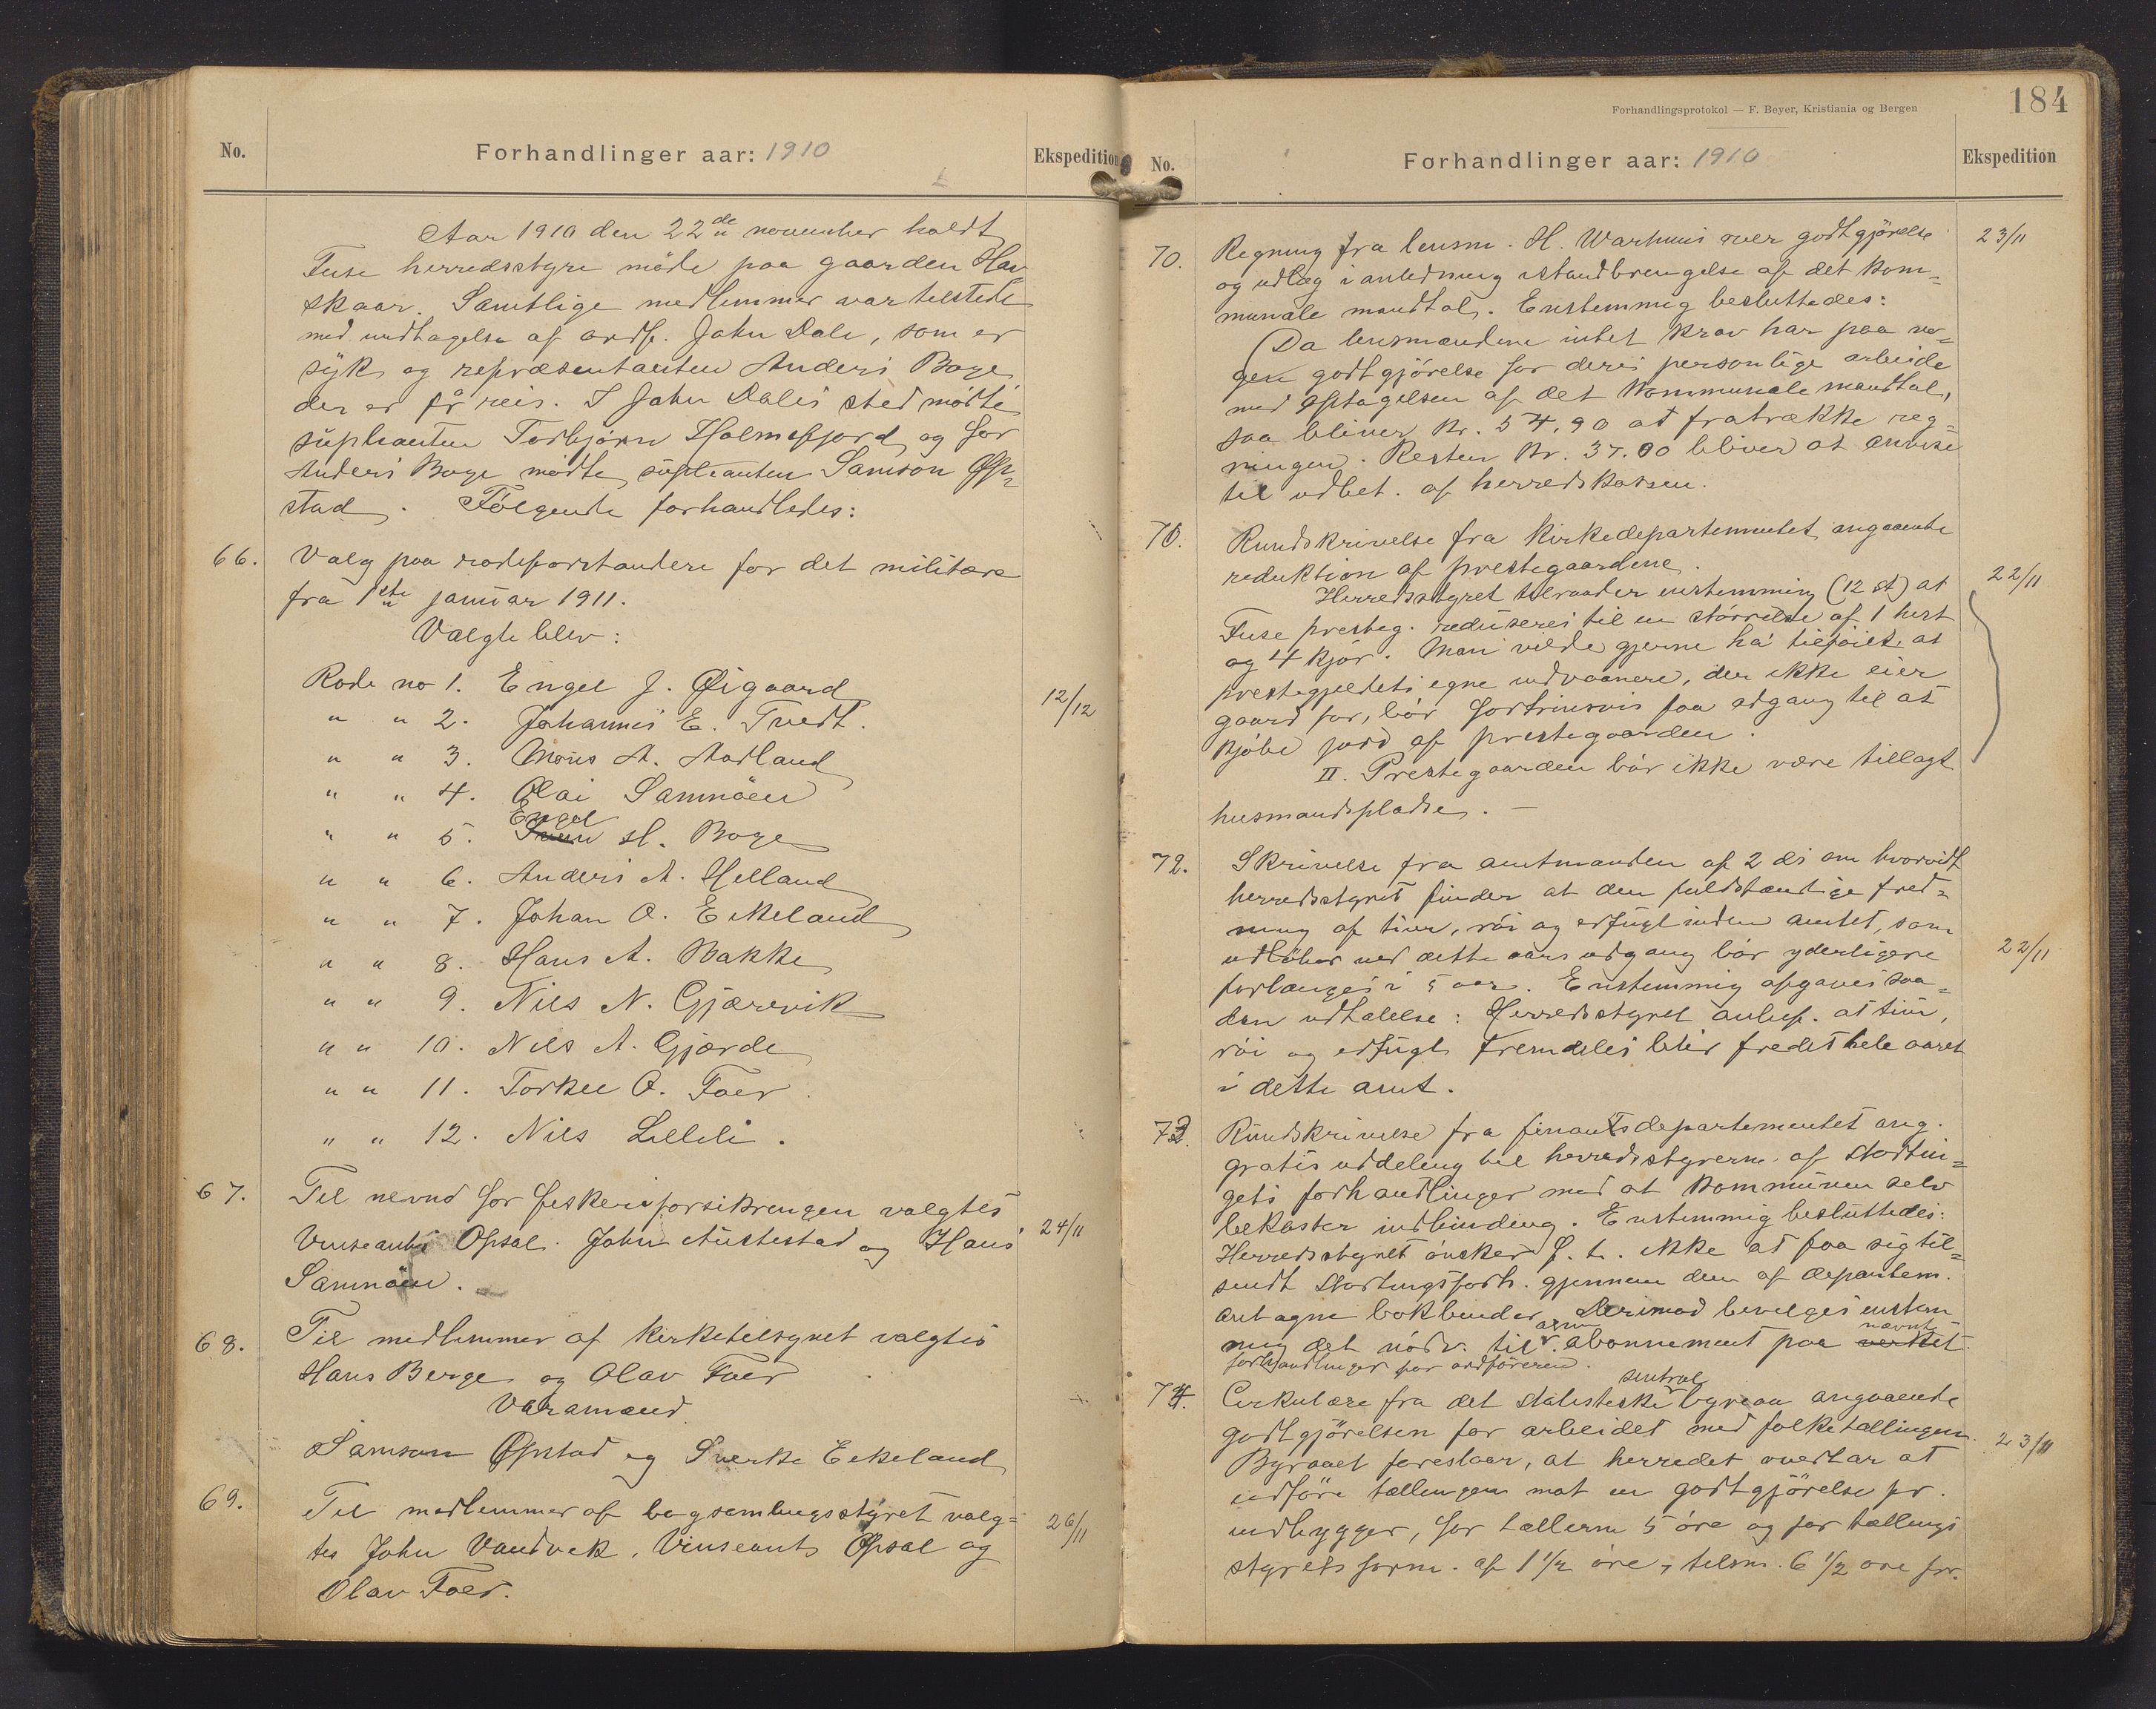 No.
Forhandlinger aar: 1910
Ekspedition
Aar 1910 den 22de november holdt
Fuse herredsstyre möde paa gaarden Hav
skaar. Samtlige medlemmer var tilstede
med undtagelse af ordf. John Dale, som er
syk og repræsentanten Anders Boge
der er på reis. I John Dales sted mödte
suplianten Torbjørn Holmefjord og for
Anders Boge mödte suplianten Samson Øp-
stad. Følgende forhandledes:
66. Valg paa rodeforstandere for det militære
fra 1ste januar 1911.
Valgte blev:
Rode no 1. Engel J. Øigaard
" " 2. Johannes E. Tvedt.
" " 3. Mons A. Aadland
" " 4. Olai Samnöen
Engel
" " 5. Sven H. Boge
" " 6. Anders A. Helland
" " 7. Johan O. Eikeland
" " 8. Hans A. Bakke
" " 9. Nils N. Gjærevik
" " 10. Nils A. Gjærde
" " 11. Torkel O. Foer.
" " 12. Nils Lilleli.
12/12
67. Til nevnd for fiskeriforsikringen valgtes
Vinseants Opsal. John Austestad og Hans
Samnöen.
24/11
68. Til medlemmer af kirketilsynet valgtes
Hans Berge og Olav Foer
Varamænd
Samson Øpstad og Sverke Eikeland
69. Til medlemmer af bogsamlingsstyret valg-
tes John Vandvik, Vinseants Opsal og
Olav Foer.
26/11
Forhandlingsprotokol — F. Beyer, Kristiania og Bergen
184
No.
Forhandlinger aar: 1910
Ekspedition
70. Regning fra lensm. H. Warhuus over godtgjörelse
og udlæg i anledning istandbrengelse af det kom-
munale mandtal. Enstemmig besluttedes:
Da lensmændene intet krav har paa no-
gen godtgjörelse for deres personlige arbeide
med optagelsen af det kommunale mandtal,
saa bliver kr. 54,90 at fratrække reg-
ningen. Resten kr. 37.00 bliver at anvise
til udbet. af herredskassen.
23/11
70. Rundskrivelse fra Kirkedepartementet angaaende
reduktion af prestegaardene.
Herredsstyret tilraader enstemmig (12 st) at
Fuse presteg. reduseres til en störrelse af 1 hest
og 4 kjör. Man vilde gjerne ha tilföiet at
prestegjeldets egne indvaanere, der ikke eier
gaard för, bör fortrinsvis faa adgang til at
kjöbe jord af prestegaarden.
II. Prestegaarden bör ikke være tillagt
husmandspladse. —
22/11
72. Skrivelse fra amtmanden af 2 ds om hvorvidt
herredsstyret finder at den fuldstændige fred-
ning af tiur, röi og erfugl inden amtet, som
udlöber ved dette aars udgang bör yderligere
forlænges i 5 aar. Enstemmig afgaves saa-
den udtalelse: Herredsstyret anbef. at tiur,
röi og erfugl fremdeles blir fredet hele aaret
i dette amt.
22/11
73. Rundskrivelse fra finantsdepartementet ang.
gratis uddeling til herredsstyrerne af Stortin-
gets forhandlinger mod at kommunen selv
bekoster indbinding. Enstemmig besluttedes:
Herredsstyret önsker f. t. ikke at faa sig til-
sendt stortingsforh. gjennem den af departem.
antagne bokbinder. Derimod bevilges enstem
mig det nödv. til abonnement paa verket nævnte
forhandlinger for ordföreren.
74. Cirkulære fra det statistiske sentral byreaa angaaende
godtgjörelsen for arbeidet med folketællingen.
Byraaet foreslaar, at herredet overtar at
udföre tællingen mot en godtgjörelse pr.
indbygger, for tællerne 5 öre og for tællings
styrets form. af 1 1/2 öre, tilsm. 6 1/2 öre pr.
23/11